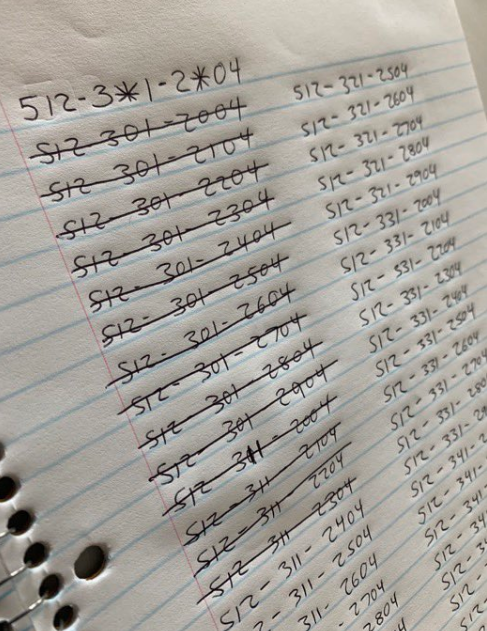 512-3*1-2*04
512-301-2004
512-301-2104
512-301-2204
512-301-2304
512-301-2404
512-301-2504
512-301-2604
512-301-2704
512-301-2804
512-301-2904
512-311-2004
512-311-2104
512-311-2204
512-311-2304
512-311-2404
2-311-2504
311-2604
2704
2804
512-321-2504
512-321-2604
512-321-2704
512-321-2804
512-321-2904
512-331-2004
512-331-2104
512-531-2204
512-331-2304
512-331-2404
512-331-2504
512-331-2604
512-331-270
512-331-280
512-331-2
512-341-2
512-341-
512-341
512-34
512-3